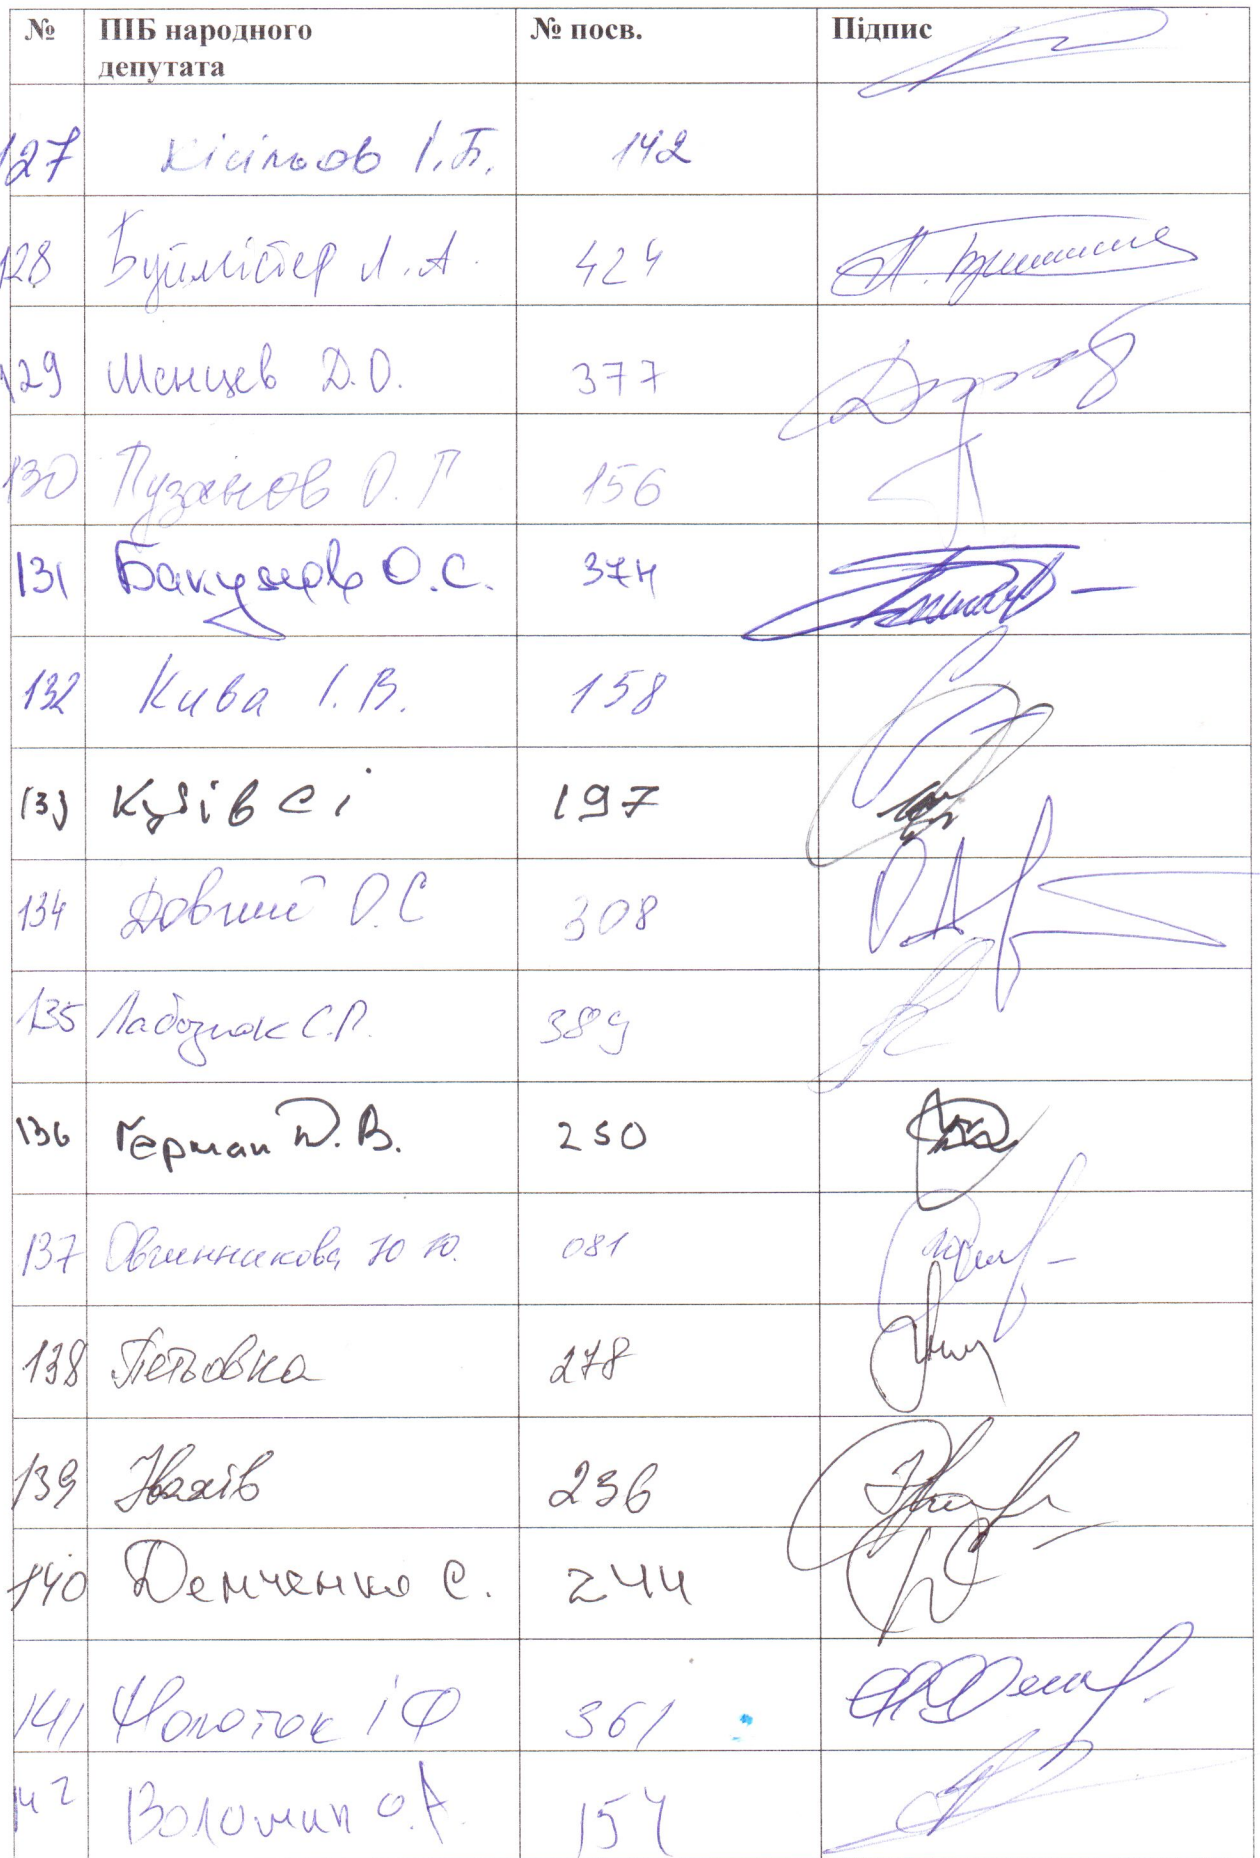 № ПІБ народного депутата № посв. Підпис
127 Кісільов І.Б. 142
128 Буймістер Л.А. 424
129 Шенцев Д.О. 377
130 Пузанов О.Г 156
131 Бакумов О.С. 374
132 Кива І.В. 158
133 Кузів С І 197
134 Довгий О.С 308
135 Лабазюк С.П. 389
136 Герман Д.В. 250
137 Овчинникова Ю Ю. 081
138 Петьовка 278
139 Іванів 236
140 Демченко С. 244
141 Молоток І Ф 361
142 Волошин О.А. 154